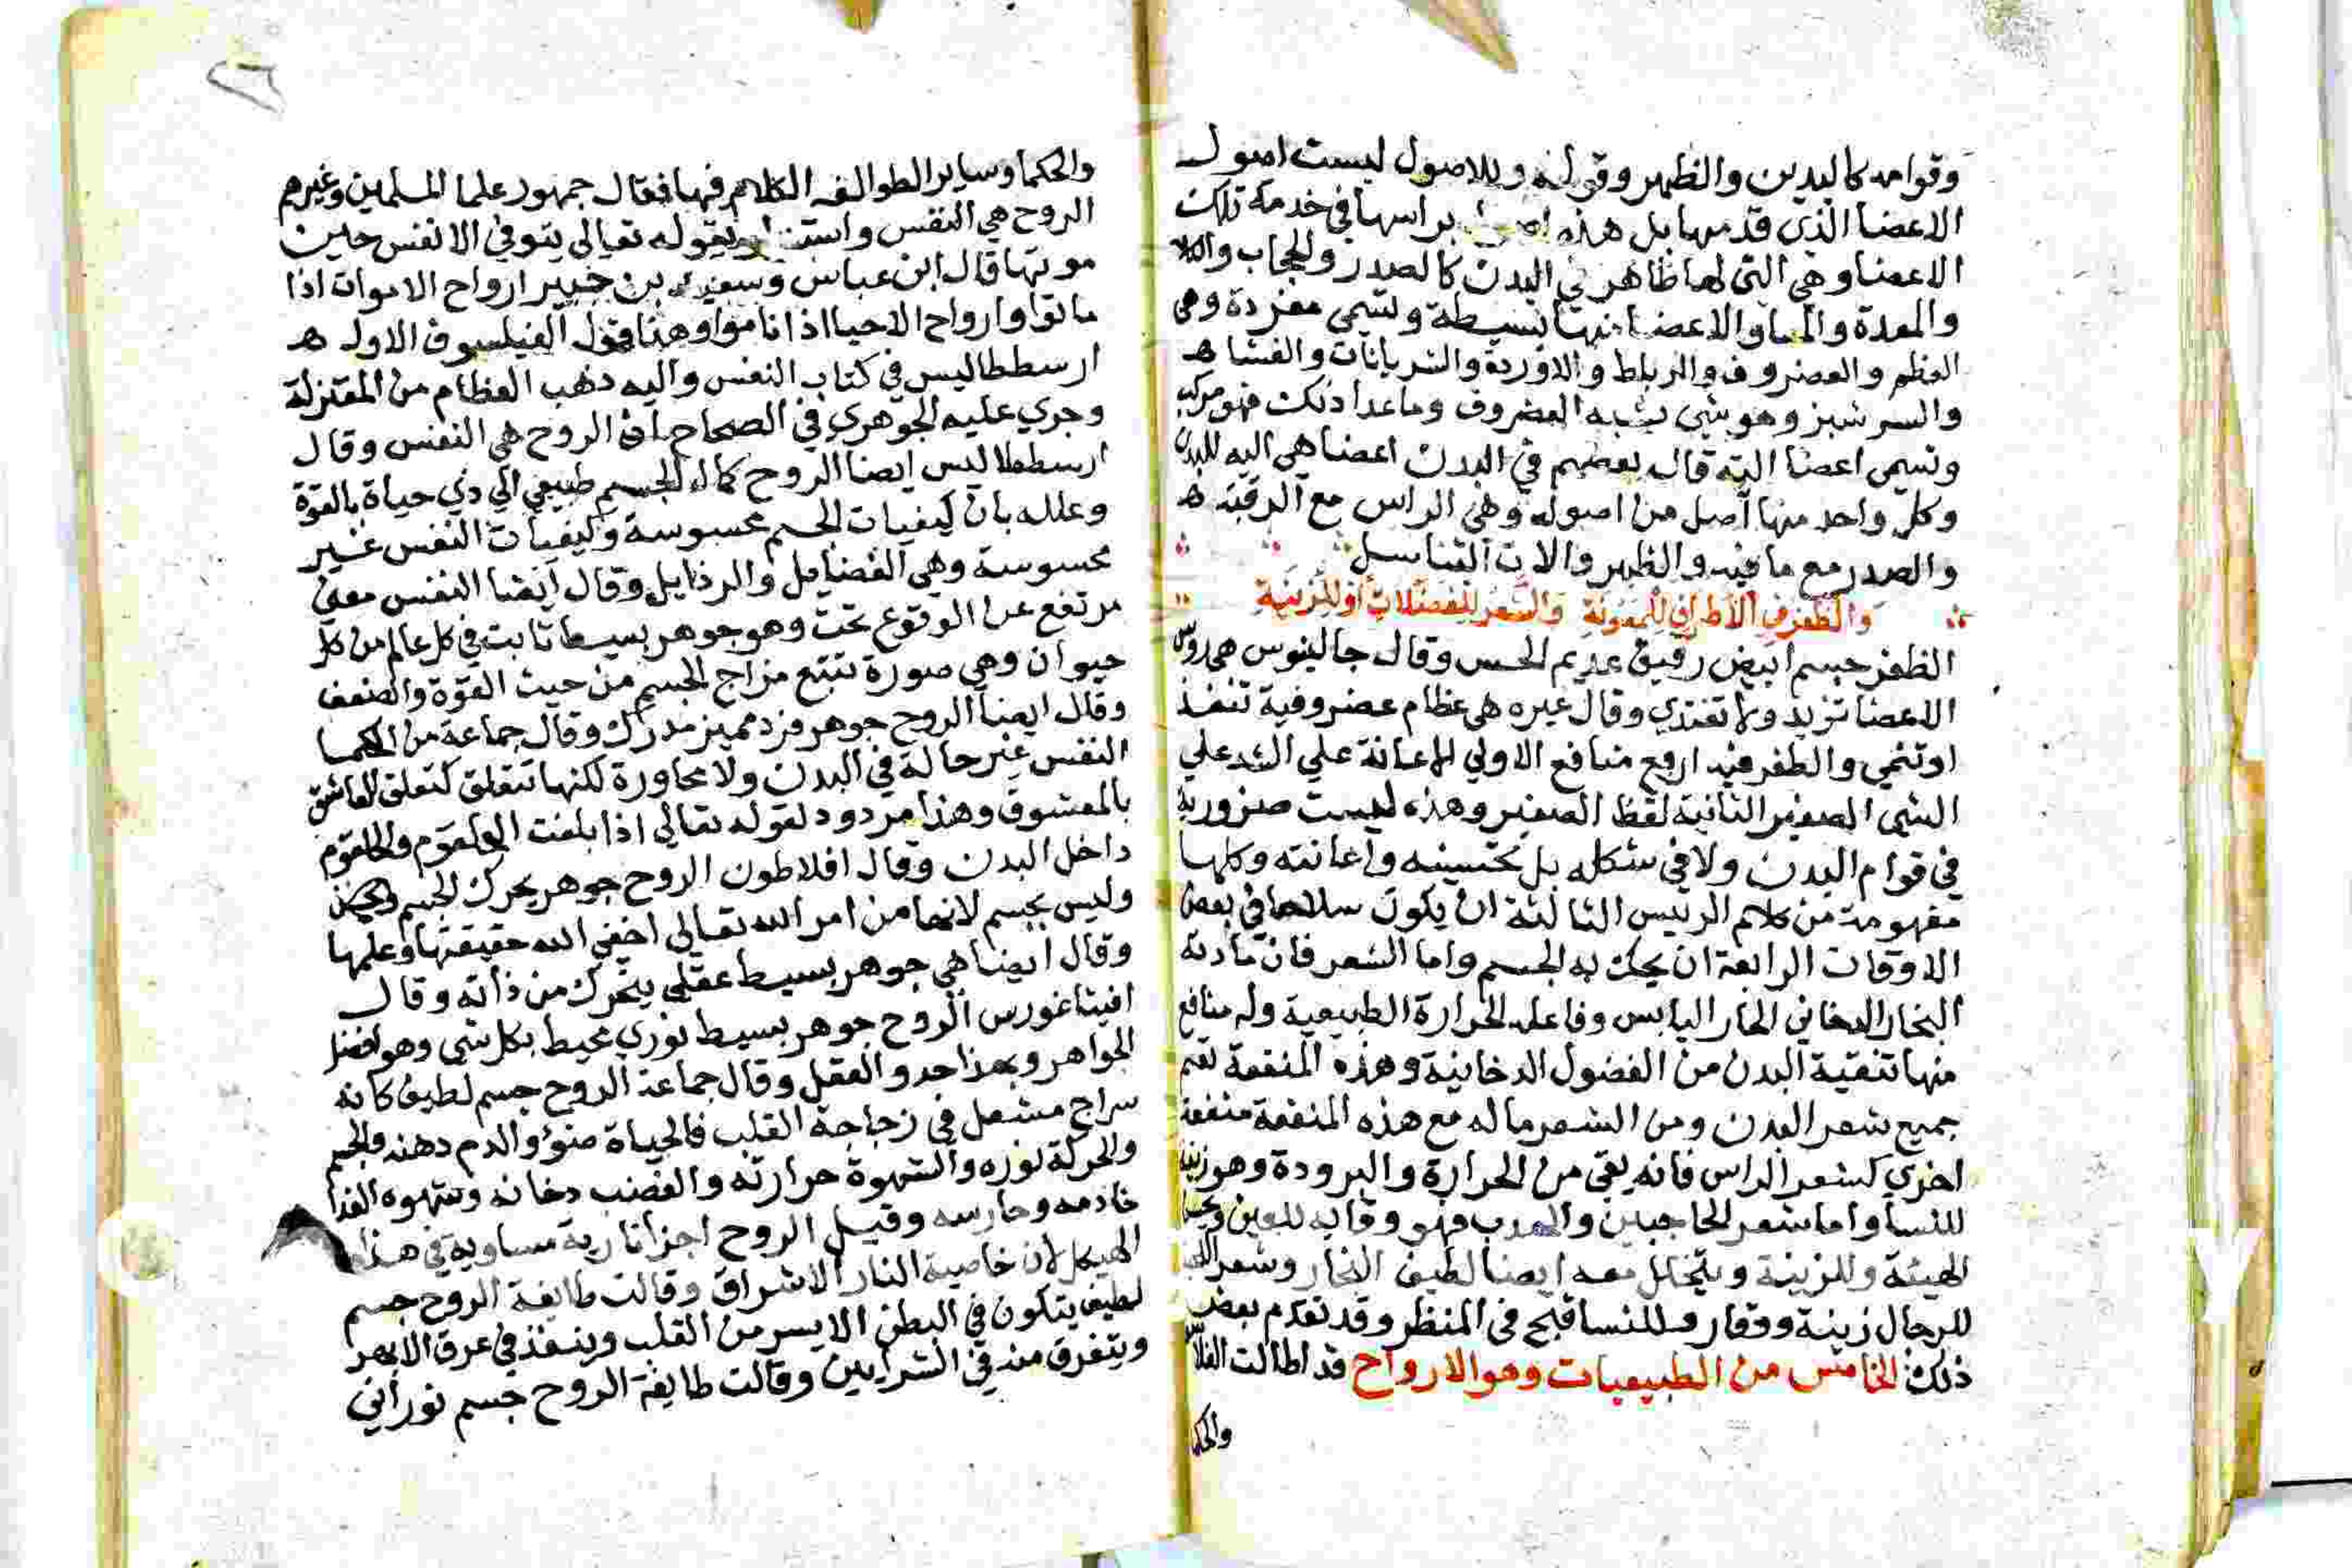 وقوامه كاليدين والظهر وقوله وللاصول ليست اصول
الاعضا الذي قدمها بل هذه براسها في خدمة تلك
الاعضا وهي التي لها ظاهر في البدن كالصدر والحجاب والكلا
والمعدة والمعا والاعضا منها بسيطة وتسمى مفردة وهي
العظم والغضروف والرباط والاوردة والشريانات والغشا ه
والسر شبز وهو شي يشبه الغضروف وما عدا ذلك فهو مركب
وتسمى اعضا اليه قال بعضهم في البدن اعضا هي اليه للبدن
وكل واحد منها اصل من اصوله وهي الراس مع الرقبة ه
والصدر مع ما فيه والظهر والات التناسل
والظفر في الاطراف للمعونة والشعر للفضلات او للزينة
الظفر جسم ابيض رقيق عديم الحس وقال جالينوس هي روس
الاعضا تزيد ولا تغتدي وقال غيره هي عظام غضروفية تنفذ
او تنمي والظفر فيه اربع منافع الاولي الاعانة علي الشد علي
الشي الصغير الثانية لقط الصغير وهذه ليست ضرورية
في قوام البدن ولا في شكله بل تحسينه واعانته وكلها
مفهومة من كلام الرئيس الثالثة ان يكون سلاحا في بعض
الاوقات الرابعة ان يحك به الجسم واما الشعر فان مادته
البخار الدخاني الحار اليابس وفاعله الحرارة الطبيعية وله منافع
منها تنقية البدن من الفضول الدخانية وهذه المنفعة تعم
جميع شعر البدن ومن الشعر ما له مع هذه المنفعة منفعة
اخري كشعر الراس فانه يقي من الحرارة والبرودة وهو زينة
للنسا واما شعر الحاجبين والهدب فهو وقاية للعين
الهيئة وللزينة ويتحلل معه ايضا لطيف البخار وشعر
للرجال زينة ووقار وللنسا قبح في المنظر وقد تقدم بعض
ذلك الخامس من الطبيعيات وهو الارواح قد اطالت
والحكما
والحكما وساير الطوائف الكلام فيها فقال جمهور علما المسلمين وغيرهم
الروح هي النفس بقوله تعالي يتوفي الانفس حين
موتها قال ابن عباس وسعيد بن جبير ارواح الاموات اذا
ماتوا وارواح الاحيا اذا ناموا وهذا قول الفيلسوف الاول ه
ارسططاليس في كتاب النفس واليه دهب العظام من المعتزلة
وجري عليه الجوهري في الصحاح بان الروح هي النفس وقال
ارسططاليس ايضا الروح كمال الجسم طبيعي الي ذي حياة بالقوة
وعلله بان كيفيات الجسم محسوسة وكيفيات النفس غير
محسوسة وهي الفضايل والرذايل وقال ايضا النفس معني
مرتفع عن الوقوع تحت وهو جوهر بسيط ثابت في كل عالم من كل
حيوان وهي صورة تتبع مزاج الجسم من حيث القوة والضعف
وقال ايضا الروح جوهر فرد مميز مدرك وقال جماعة من الحكما
النفس غير حالة في البدن ولا مجاورة لكنها تتعلق كتعلق العاشق
بالمعشوق وهذا مردود لقوله تعالي اذا بلغت الحلقوم والحلقوم
داخل البدن وقال افلاطون الروح جوهر يحرك الجسم
وليس بجسم لانها من امر الله تعالي اخفي الله حقيقتها وعلمها
وقال ايضا هي جوهر بسيط عقلي يتحرك من ذاته وقال
افيتاغورس الروح جوهر بسيط نوري محيط بكل شي وهو افضل
الجواهر وبهذا حدو العقل وقال جماعة الروح جسم لطيف كانه
سراج مشعل في زجاجة القلب فالحياة ضوؤ والدم دهنه والجسم
والحركة نوره والشهوة حرارته والغضب دخانه وشهوه الغذا
خادمه وحارسه وقيل الروح اجزا نارية مساوية في هذا
الهيكل لان خاصية النار الاشراق وقالت طايفة الروح جسم
لطيف يتكون في البطن الايسر من القلب وينفذ في عرق الابهر
ويتفرق منه في الشرايين وقالت طايفة الروح جسم نوراني